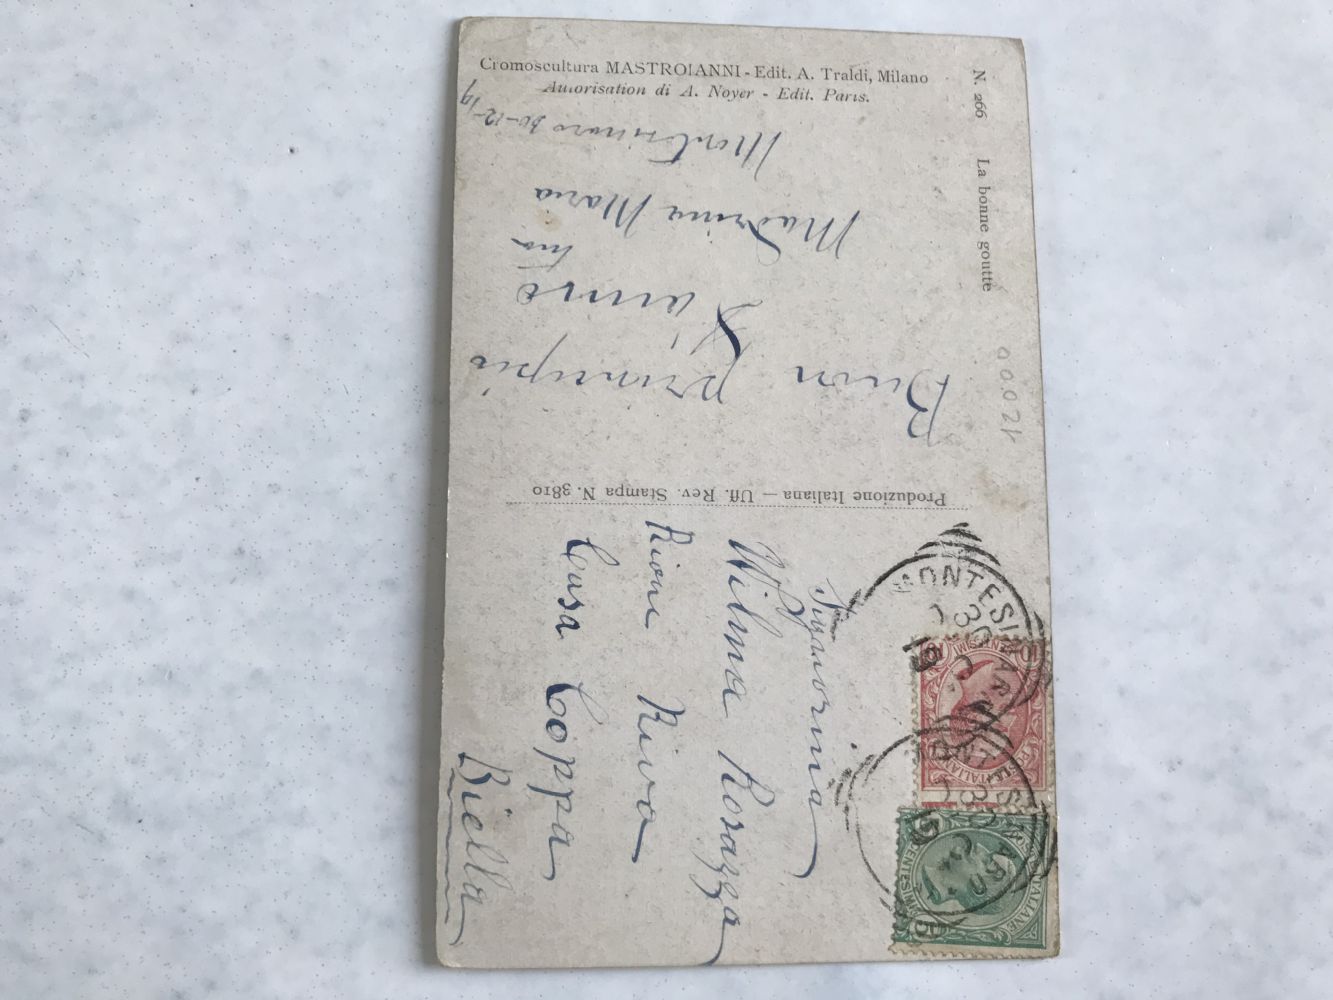 Cromoscultura MASTROIANNI - Edit. A. Traldi, Milano
Autorisation di A. Noyer - Edit. Paris.
N. 266 La bonne goutte
12000
Buon principio
d'anno
tua
Madrina Maria
30-12-19
Produzione Italiana — Uff. Rev. Stampa N. 3810
Signorina
Wilma Rosazza
Rione Riva
Casa Coppa
Biella